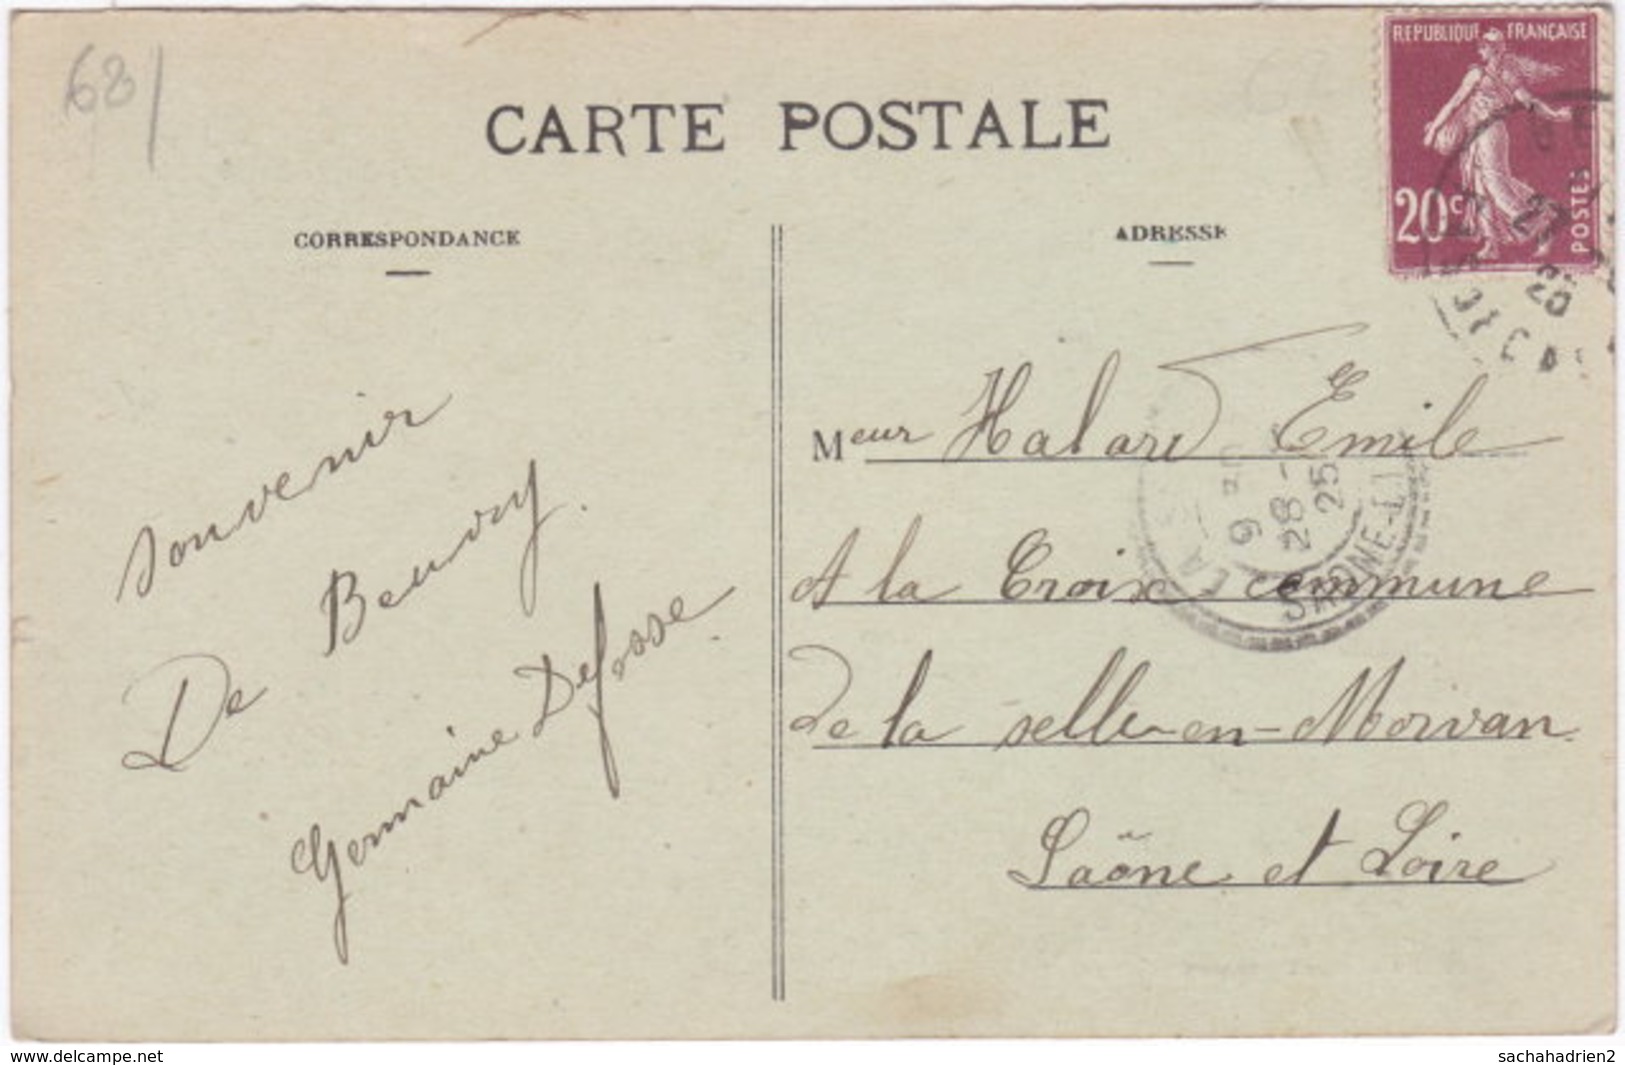 68
CARTE POSTALE
REPUBLIQUE FRANÇAISE
20c POSTES
27
25
CORRESPONDANCE
ADRESSE
souvenir
De Beuvry.
Germaine Defosse.
Meur Halard Emile
A la Croix commune
De la selle-en-Morvan.
Saône et Loire
9
28 -
25
SAONE-&-L
www.delcampe.net
sachahadrien2